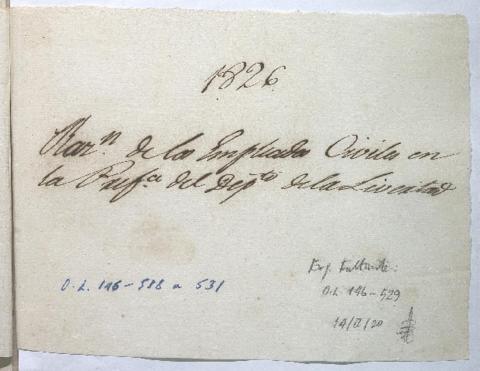 1826.
Razⁿ de los Empleados Civiles en
la Prefᶜᵃ del Depᵗᵒ de la Livertad
O.L. 146-588 a 531
Exp. Faltante:
O.L. 146-529
14/II/20